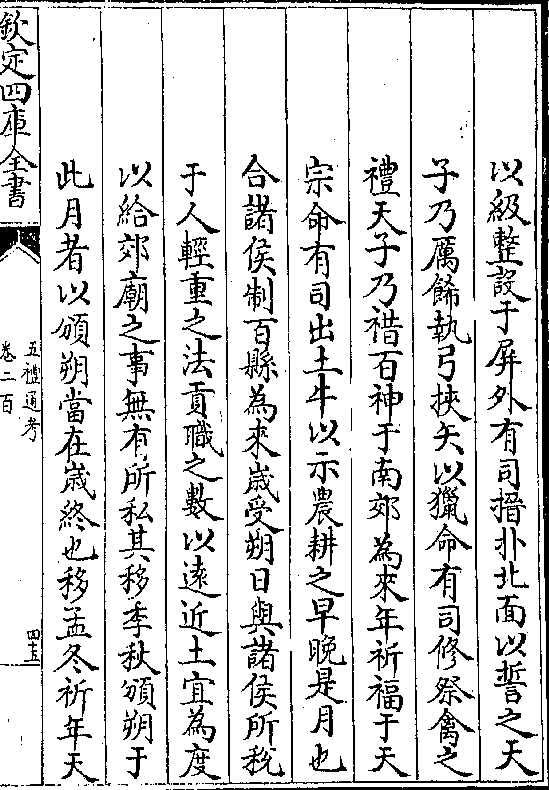 以級整設于屏外有司搢扑北面以誓之天
子乃厲飾執弓挾矢以獵命有司修祭禽之
禮天子乃禬百神于南郊為來年祈福于天
宗命有司出土牛以示農耕之早晚是月也
合諸侯制百縣為來歲受朔日與諸侯所稅
于人輕重之法貢職之數以遠近土宜為度
以給郊廟之事無有所私其移季秋頒朔于
此月者以頒朔當在歲終也移孟冬祈年天
欽定四庫全書
五禮通考
卷二百
四十五